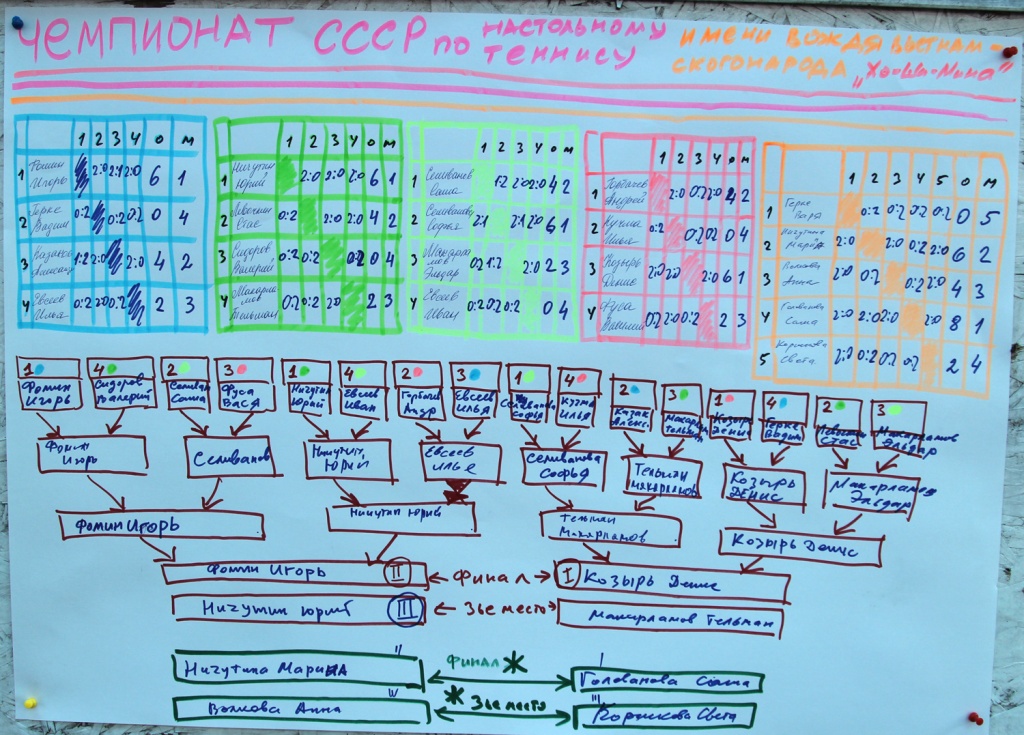 ЧЕМПИОНАТ СССР ПО НАСТОЛЬНОМУ ТЕННИСУ
ИМЕНИ ВОЖДЯ ВЬЕТНАМ-
СКОГО НАРОДА „Хо-Ши-Мина"
1 2 3 4 О М
1 Фомин Игорь 2:0 2:1 2:0 6 1
2 Герке Вадим 0:2 0:2 0:2 0 4
3 1:2 2:0 2:0 4 2
4 Евсеев Илья 0:2 2:0 0:2 2 3
1 2 3 4 О М
1 Ничутин Юрий 2:0 2:0 2:0 6 1
2 Стас 0:2 2:0 2:0 4 2
3 Сидоров Валерий 0:2 0:2 0:2 0 4
4 Макарла мов Тельман 0:2 0:2 2:0 2 3
1 2 3 4 О М
1 Селиванов Саша 1:2 2:0 2:0 4 2
2 Селиванова Софья 2:1 2:1 2:0 6 1
3 Макарла мов Эльдар 0:2 1:2 2:0 2 3
4 Евсеев Иван 0:2 0:2 0:2 0 4
1 2 3 4 О М
1 Горбачев Андрей 2:0 0:2 2:0 4 2
2 Кузма Илья 0:2 0:2 0:2 0 4
3 Козырь Денис 2:0 2:0 2:0 6 1
4 Фуса Василий 0:2 2:0 0:2 2 3
1 2 3 4 5 О М
1 Герке Варя 0:2 0:2 0:2 0:2 0 5
2 Ничутина Марина 2:0 2:0 0:2 2:0 6 2
3 Волкова Анна 2:0 0:2 0:2 2:0 4 3
4 Голованова Саша 2:0 2:0 2:0 2:0 8 1
5 Коршкова Света 2:0 0:2 0:2 0:2 2 4
1 4 2 3 1 4 2 3 1 4 2 3 1 4 2 3
Фомин Игорь
Сидоров Валерий
Селиванов Саша
Фуса Вася
Ничутин Юрий
Евсеев Иван
Горбачев Андр
Евсеев Илья
Селиванова Софья
Кузма Илья
Казак Алекс.
Макарла Тельман
Козырь Денис
Герке Вадим
Стас
Макарламов Эльдар
Фомин Игорь
Селиванов
Ничутин Юрий
Евсеев Илья
Селиванова Софья
Тельман Макарламов
Козырь Денис
Макарламов Эльдар
Фомин Игорь
Ничутин Юрий
Тельман Макарламов
Козырь Денис
Фомин Игорь II Финал I Козырь Денис
Ничутин Юрий III 3ье место Макарламов Тельман
Ничутина Марина II Финал I Голованова Саша
Волкова Анна IV 3ье место III Коршкова Света